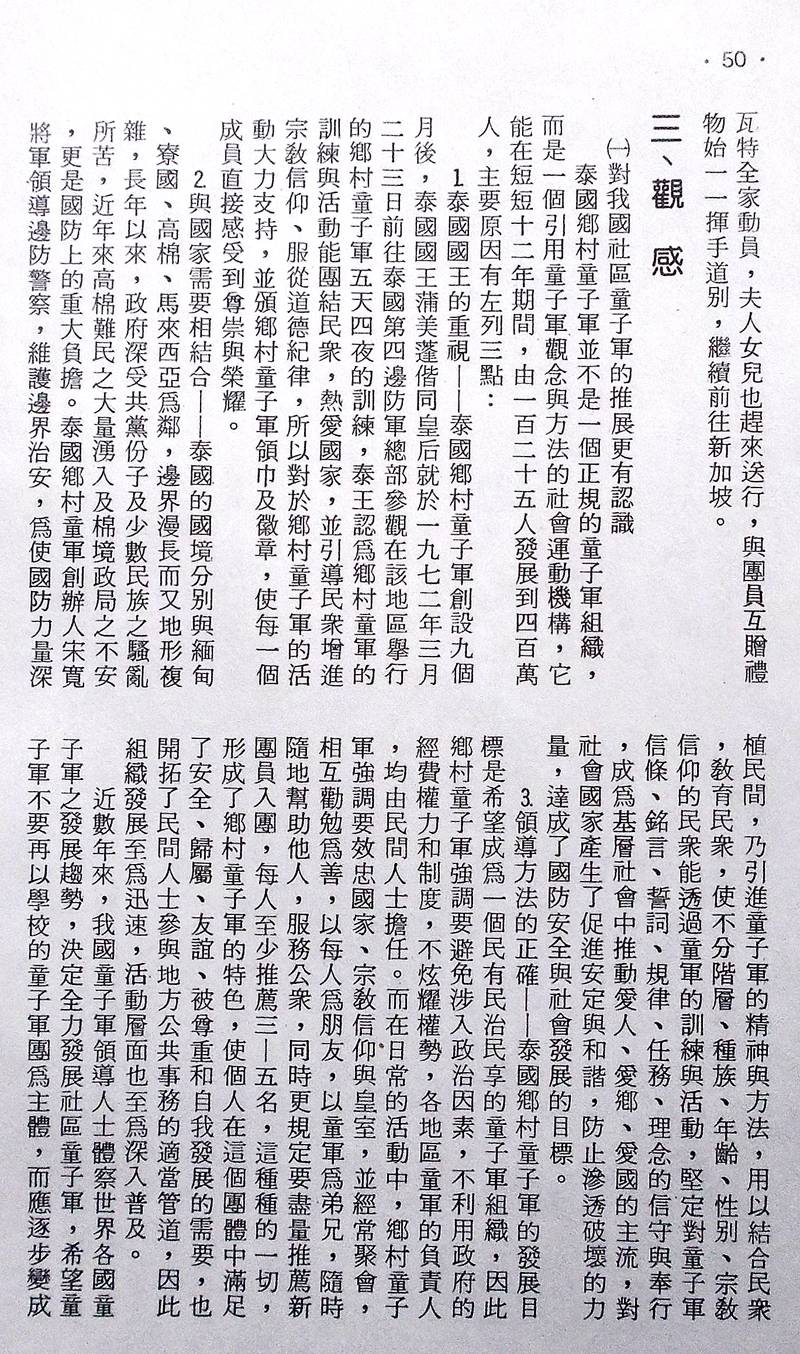 ·50·
瓦特全家動員，夫人女兒也趕來送行，與團員互贈禮
物始一一揮手道別，繼續前往新加坡。
三、觀感
㈠對我國社區童子軍的推展更有認識
泰國鄉村童子軍並不是一個正規的童子軍組織，
而是一個引用童子軍觀念與方法的社會運動機構，它
能在短短十二年期間，由一百二十五人發展到四百萬
人，主要原因有左列三點：
1.泰國國王的重視——泰國鄉村童子軍創設九個
月後，泰國國王蒲美蓬偕同皇后就於一九七二年三月
二十三日前往泰國第四邊防軍總部參觀在該地區舉行
的鄉村童子軍五天四夜的訓練，泰王認爲鄉村童軍的
訓練與活動能團結民衆，熱愛國家，並引導民衆增進
宗教信仰、服從道德紀律，所以對於鄉村童子軍的活
動大力支持，並頒鄉村童子軍領巾及徽章，使每一個
成員直接感受到尊崇與榮耀。
2.與國家需要相結合——泰國的國境分別與緬甸
、寮國、高棉、馬來西亞爲鄰，邊界漫長而又地形複
雜，長年以來，政府深受共黨份子及少數民族之騷亂
所苦，近年來高棉難民之大量湧入及棉境政局之不安
，更是國防上的重大負擔。泰國鄉村童軍創辦人宋寬
將軍領導邊防警察，維護邊界治安，爲使國防力量深
植民間，乃引進童子軍的精神與方法，用以結合民衆
，教育民衆，使不分階層、種族、年齡、性別、宗教
信仰的民衆能透過童軍的訓練與活動，堅定對童子軍
信條、銘言、誓詞、規律、任務、理念的信守與奉行
，成爲基層社會中推動愛人、愛鄉、愛國的主流，對
社會國家產生了促進安定與和諧，防止滲透破壞的力
量，達成了國防安全與社會發展的目標。
3.領導方法的正確——泰國鄉村童子軍的發展目
標是希望成爲一個民有民治民享的童子軍組織，因此
鄉村童子軍強調要避免涉入政治因素，不利用政府的
經費權力和制度，不炫耀權勢，各地區童軍的負責人
，均由民間人士擔任。而在日常的活動中，鄉村童子
軍強調要效忠國家、宗教信仰與皇室，並經常聚會，
相互勸勉爲善，以每人爲朋友，以童軍爲弟兄，隨時
隨地幫助他人，服務公衆，同時更規定要盡量推薦新
團員入團，每人至少推薦三—五名，這種種的一切，
形成了鄉村童子軍的特色，使個人在這個團體中滿足
了安全、歸屬、友誼、被尊重和自我發展的需要，也
開拓了民間人士參與地方公共事務的適當管道，因此
組織發展至爲迅速，活動層面也至爲深入普及。
近數年來，我國童子軍領導人士體察世界各國童
子軍之發展趨勢，決定全力發展社區童子軍，希望童
子軍不要再以學校的童子軍團爲主體，而應逐步變成